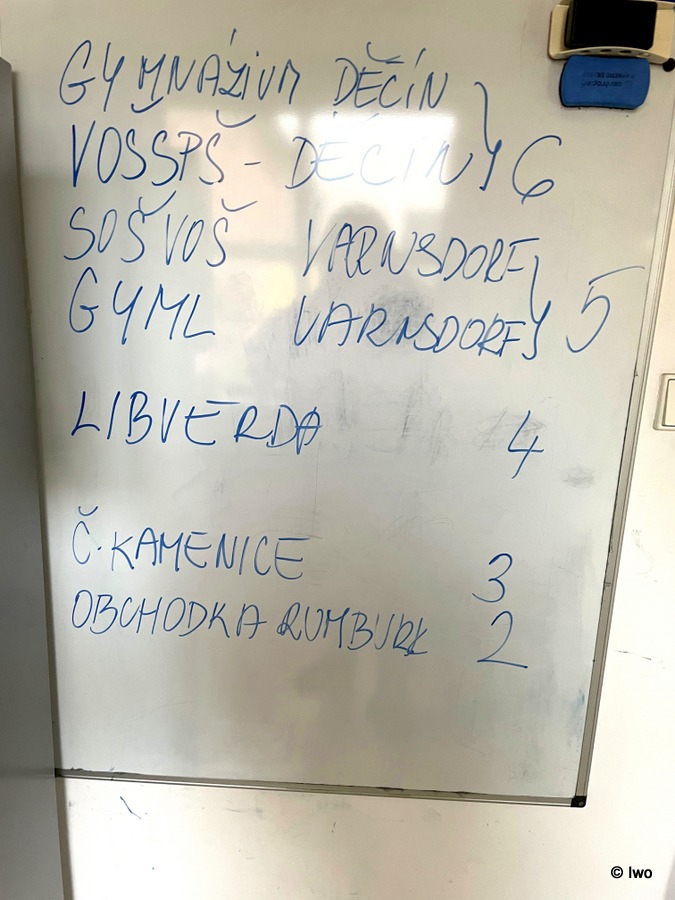 GYMNÁZIUM DĚČÍN
VOŠSPŠ - DĚČÍN 6
SOŠVOŠ VARNSDORF
GYML VARNSDORF 5
LIBVERDA 4
Č. KAMENICE 3
OBCHODKA RUMBURK 2
© Iwo